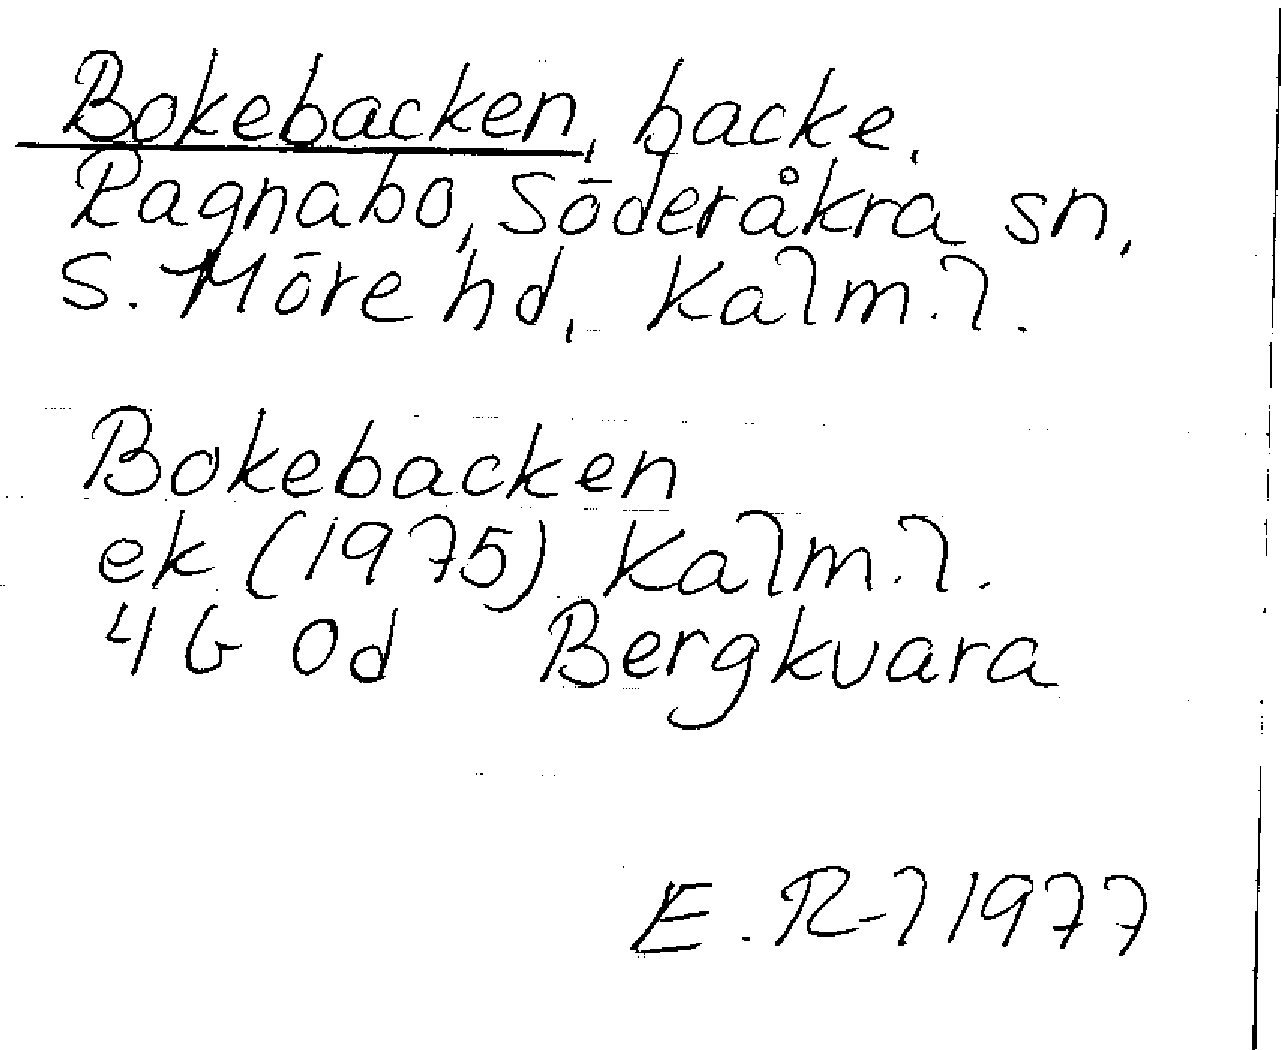 Bokebacken, backe.
Ragnabo, Söderåkra sn,
S. Möre hd, Kalm. l.
Bokebacken
ek (1975) Kalm. l.
4G 0d Bergkvara
E. R-l 1977